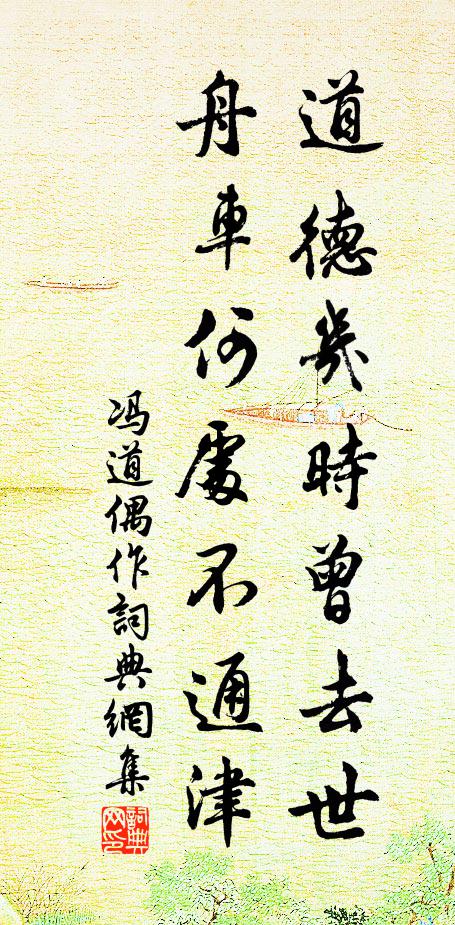 道德幾時曾去世
舟車何處不通津
冯道偶作詞典網集
詞典
网印